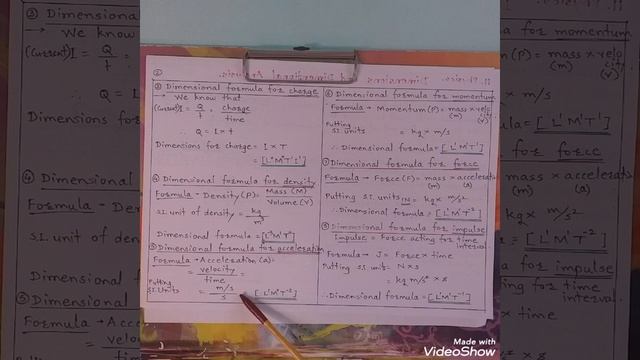 ②
③ Dimensional formula for charge
→ We know that
(Current) I = Q/t = charge/time
∴ Q = I×t
Dimensions for charge = I×T
= [L⁰M⁰T¹I¹]
④ Dimensional formula for density
Formula - Density(ρ) = Mass (M)/Volume (V)
S.I. unit of density = kg/m³
Dimensional formula =
⑤ Dimensional formula for acceleration
Formula → Acceleration (A) =
= velocity/time =
Putting S.I. Units = m/s/s [L¹M⁰T⁻²]
⑥ Dimensional formula for momentum
Formula → Momentum (P) = mass × velocity
(m) (v)
Putting S.I. units = kg × m/s
∴ Dimensional formula = [L¹M¹T⁻¹]
⑦ Dimensional formula for force
Formula → Force (F) = mass × accelerati
(m) (a)
Putting S.I. units 1N = kg × m/s²
∴ Dimensional formula = [L¹M¹T⁻²]
⑧ Dimensional formula for impulse
Impulse = Force acting for time interval.
Formula → J = Force × time
Putting S.I. unit = N×s
= kg m/s² × s
∴ Dimensional formula = [L¹M¹T⁻¹]
Made with
VideoShow